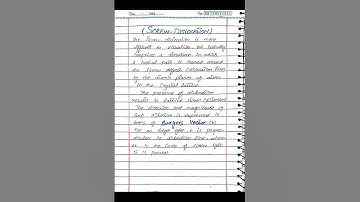 (SCREW-DISLOCATION)
The Screw dislocation is more
difficult to visualise, but basically
comprises a structure in which
a helical path is traced around
the linear defect (dislocation line)
by the atomic planes of atoms
in the Crystal lattice.
The presence of dislocation
results in lattice strain (distortion)
The direction and magnitude of
such distortion is expressed in
terms of Burgers Vector (b)
For an Edge type, b is perpen
dicular to dislocation line, where
as in the cases of screw type
it is parallel